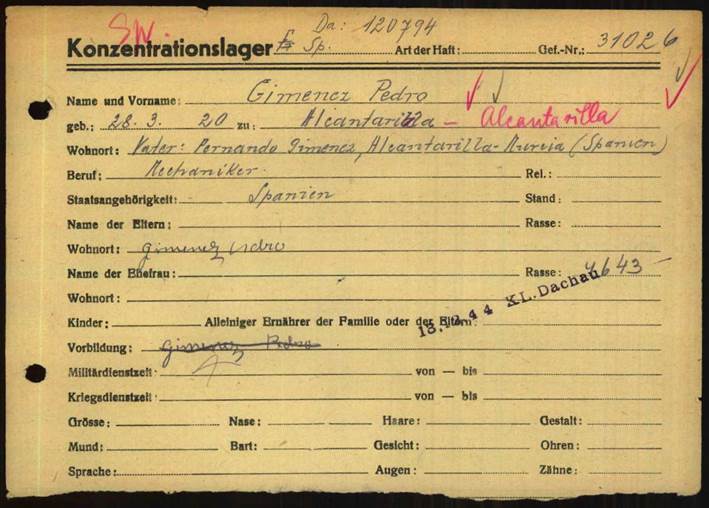 SW. Da: 120794
Konzentrationslager Sp. Art der Haft: Gef.-Nr.: 31026
Name und Vorname: Gimenez Pedro
geb.: 28.3.20 zu: Alcantarilla - Alcantarilla
Wohnort: Vater: Fernando Gimenez, Alcantarilla-Murcia (Spanien)
Beruf: Mechaniker. Rel.:
Staatsangehörigkeit: Spanien Stand:
Name der Eltern: Rasse:
Wohnort: Gimenez Pedro
Name der Ehefrau: Rasse: 4643-
Wohnort: 13.12.44 KL. Dachau
Kinder: Alleiniger Ernährer der Familie oder der Eltern:
Vorbildung: Gimenez Pedro
Militärdienstzeit: von — bis
Kriegsdienstzeit: von — bis
Grösse: Nase: Haare: Gestalt:
Mund: Bart: Gesicht: Ohren:
Sprache: Augen: Zähne: